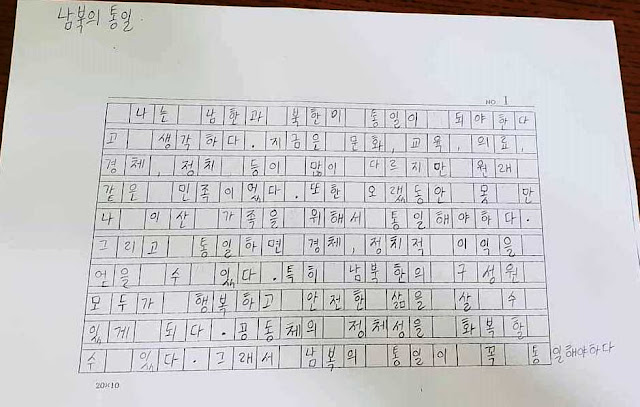 남북의 통일
NO. 1
나는 남한과 북한이 통일이 되야한다
고 생각하다. 지금은 문화, 교육, 의료,
경체, 정치 등이 많이 다르지만 원래
같은 민족이었다. 또한 오랬동안 못 만
나 이산 가족을 위해서 통일해야하다.
그리고 통일하면 경체, 정치적 이익을
얻을 수 있다. 특히 남북한의 구성원
모두가 행복하고 안전한 삶을 살 수
있게 되다. 공동체의 정체성을 화복할
수 있다. 그래서 남북의 통일이 꼭 통일해야하다
20×10